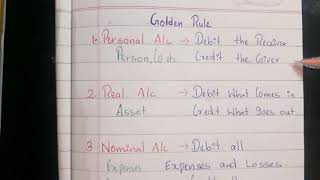 Golden Rule
1. Personal A/c → Debit the Receiver
Person, Co etc Credit the Giver
2 Real A/c → Debit What Comes in
Asset Credit What goes out
3 Nominal A/c → Debit all
Expenses Expenses and Losses.